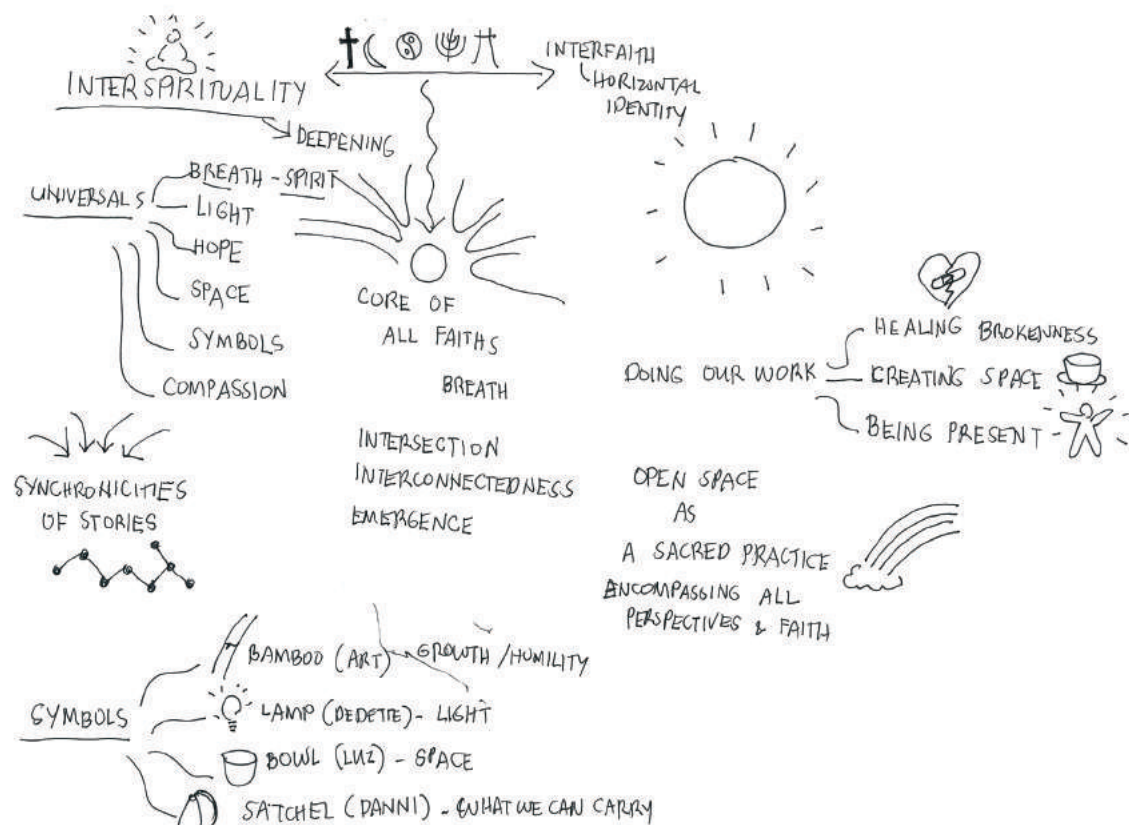 INTERSPIRITUALITY
DEEPENING
INTERFAITH
HORIZONTAL
IDENTITY
UNIVERSALS
BREATH - SPIRIT
LIGHT
HOPE
SPACE
SYMBOLS
COMPASSION
CORE OF
ALL FAITHS
BREATH
INTERSECTION
INTERCONNECTEDNESS
EMERGENCE
SYNCHRONICITIES
OF STORIES
DOING OUR WORK
HEALING BROKENNESS
CREATING SPACE
BEING PRESENT
OPEN SPACE
AS
A SACRED PRACTICE
ENCOMPASSING ALL
PERSPECTIVES & FAITH
SYMBOLS
BAMBOO (ART) - GROWTH / HUMILITY
LAMP (DEDETTE) - LIGHT
BOWL (LUZ) - SPACE
SATCHEL (DANNI) - WHAT WE CAN CARRY